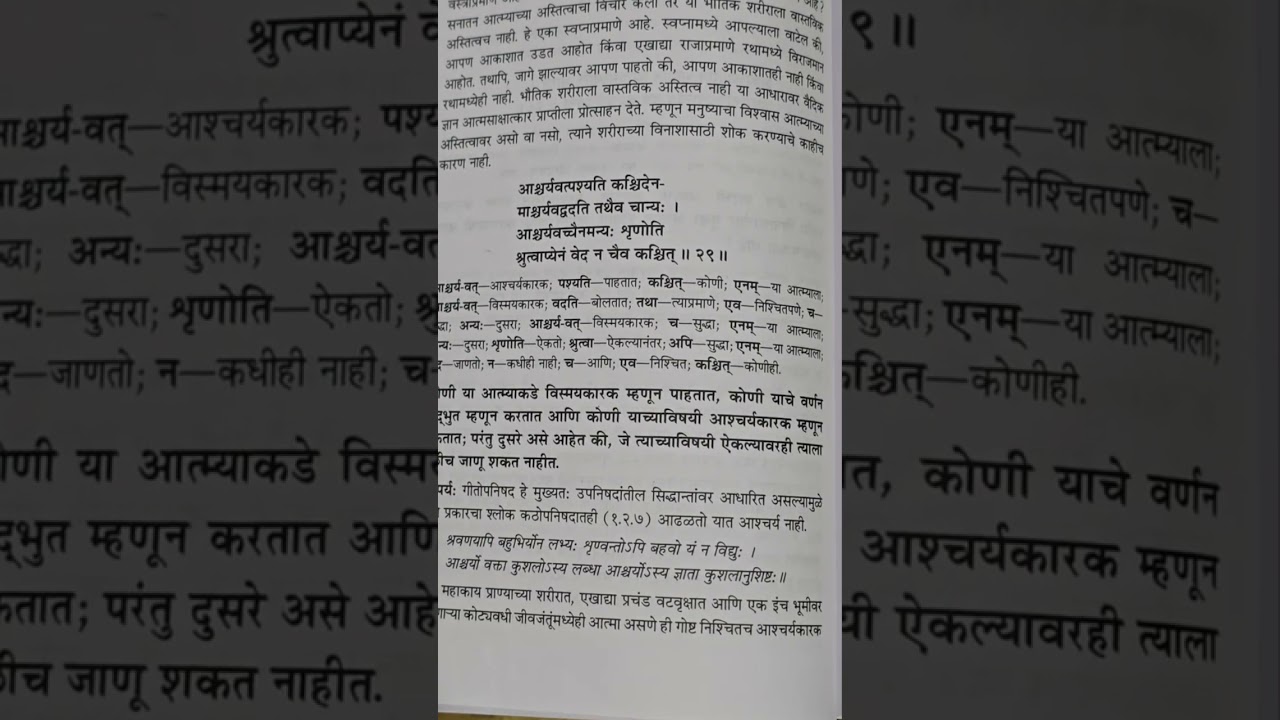 सनातन आत्म्याच्या अस्तित्वाचा विचार केला तर या भौतिक शरीराला वास्तविक
अस्तित्वच नाही. हे एका स्वप्नाप्रमाणे आहे. स्वप्नामध्ये आपल्याला वाटेल की,
आपण आकाशात उडत आहोत किंवा एखाद्या राजाप्रमाणे रथामध्ये विराजमान
आहोत. तथापि, जागे झाल्यावर आपण पाहतो की, आपण आकाशातही नाही किंवा
रथामध्येही नाही. भौतिक शरीराला वास्तविक अस्तित्व नाही या आधारावर वैदिक
ज्ञान आत्मसाक्षात्कार प्राप्तीला प्रोत्साहन देते. म्हणून मनुष्याचा विश्वास आत्म्याच्या
अस्तित्वावर असो वा नसो, त्याने शरीराच्या विनाशासाठी शोक करण्याचे काहीच
कारण नाही.
आश्चर्यवत्पश्यति कश्चिदेन-
माश्चर्यवद्वदति तथैव चान्यः ।
आश्चर्यवच्चैनमन्यः शृणोति
श्रुत्वाप्येनं वेद न चैव कश्चित् ॥ २९॥
ाश्चर्य-वत्—आश्चर्यकारक; पश्यति—पाहतात; कश्चित्—कोणी; एनम्—या आत्म्याला;
ाश्चर्य-वत्—विस्मयकारक; वदति—बोलतात; तथा—त्याप्रमाणे; एव—निश्चितपणे; च—
द्धा; अन्यः—दुसरा; आश्चर्य-वत्—विस्मयकारक; च—सुद्धा; एनम्—या आत्म्याला;
न्यः—दुसरा; शृणोति—ऐकतो; श्रुत्वा—ऐकल्यानंतर; अपि—सुद्धा; एनम्—या आत्म्याला;
द—जाणतो; न—कधीही नाही; च—आणि; एव—निश्चित; कश्चित्—कोणीही.
ोणी या आत्म्याकडे विस्मयकारक म्हणून पाहतात, कोणी याचे वर्णन
द्‌भुत म्हणून करतात आणि कोणी याच्याविषयी आश्चर्यकारक म्हणून
कतात; परंतु दुसरे असे आहेत की, जे त्याच्याविषयी ऐकल्यावरही त्याला
ीच जाणू शकत नाहीत.
पर्य: गीतोपनिषद हे मुख्यतः उपनिषदांतील सिद्धान्तांवर आधारित असल्यामुळे
प्रकारचा श्लोक कठोपनिषदातही (१.२.७) आढळतो यात आश्चर्य नाही.
श्रवणयापि बहुभिर्योन लभ्यः शृण्वन्तोऽपि बहवो यं न विद्युः ।
आश्चर्यो वक्ता कुशलोऽस्य लब्धा आश्चर्योऽस्य ज्ञाता कुशलानुशिष्टः॥
महाकाय प्राण्याच्या शरीरात, एखाद्या प्रचंड वटवृक्षात आणि एक इंच भूमीवर
णाऱ्या कोट्यवधी जीवजंतूंमध्येही आत्मा असणे ही गोष्ट निश्चितच आश्चर्यकारक